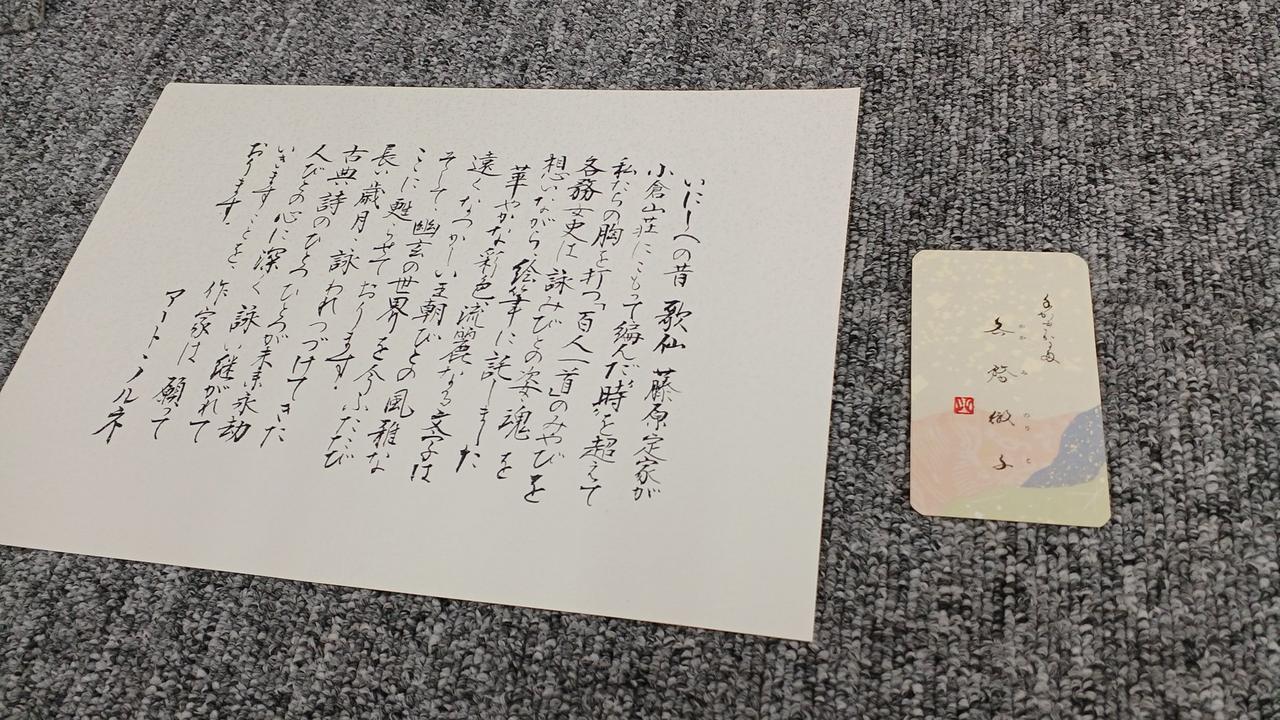 いにしへの昔 歌仙 藤原定家が
小倉山荘にこもって編んだ、時を超えて
私たちの胸を打つ「百人一首」のみやびを
各務女史は 詠みびとの姿、魂を
想いながら、絵筆に託しました
華やかな彩色、流麗なる文字は
遠くなつかしい王朝びとの風雅な
そして、幽玄の世界を今ふたたび
ここに甦らせております。
長い歳月、詠われつづけてきた
古典詩のひとつひとつが未来永劫
人びとの心に深く 詠い継がれて
いきますことを、作家は 願って
おります。
アート・ノルネ
各務
子